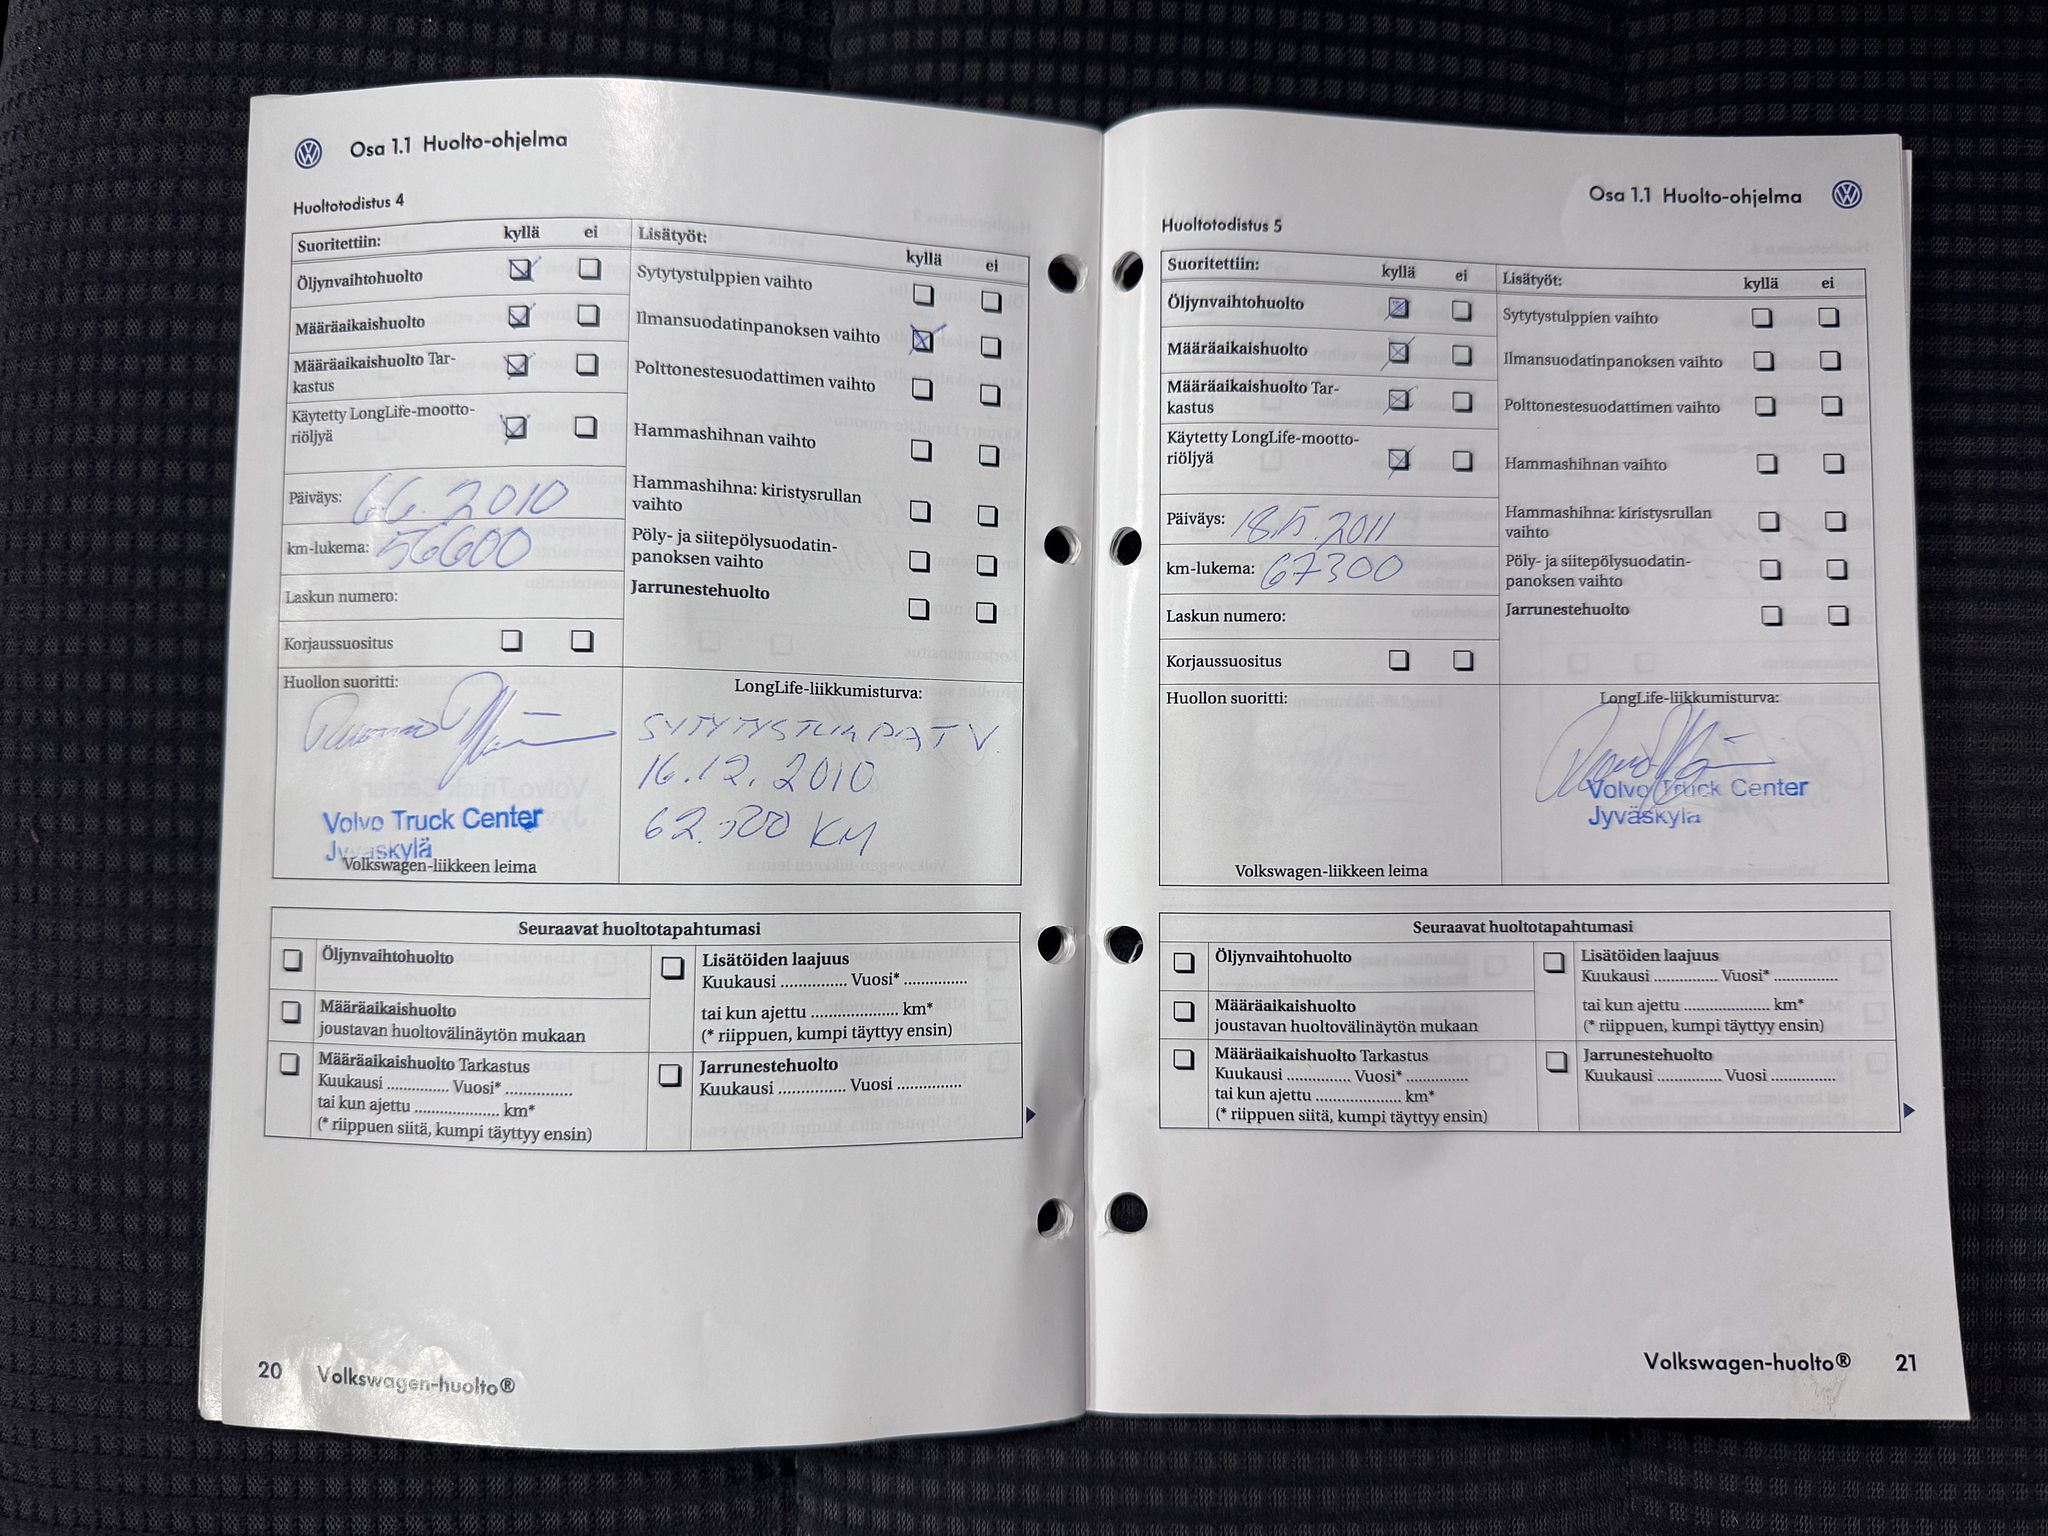 Osa 1.1 Huolto-ohjelma
Huoltotodistus 4
Suoritettiin: kyllä ei
Öljynvaihtohuolto
Määräaikaishuolto
Määräaikaishuolto Tar-
kastus
Käytetty LongLife-mootto-
riöljyä
Päiväys: 6.6.2010
km-lukema: 56600
Laskun numero:
Korjaussuositus
Lisätyöt:
kyllä ei
Sytytystulppien vaihto
Ilmansuodatinpanoksen vaihto
Polttonestesuodattimen vaihto
Hammashihnan vaihto
Hammashihna: kiristysrullan
vaihto
Pöly- ja siitepölysuodatin-
panoksen vaihto
Jarrunestehuolto
Huollon suoritti:
Volvo Truck Center
Jyväskylä
Volkswagen-liikkeen leima
LongLife-liikkumisturva:
SYTYTYSTULPAT V.
16.12.2010
KM
Seuraavat huoltotapahtumasi
Öljynvaihtohuolto
Määräaikaishuolto
joustavan huoltovälinäytön mukaan
Määräaikaishuolto Tarkastus
Kuukausi .............. Vuosi* ...............
tai kun ajettu ................... km*
(* riippuen siitä, kumpi täyttyy ensin)
Lisätöiden laajuus
Kuukausi ............... Vuosi* ..............
tai kun ajettu .................... km*
(* riippuen, kumpi täyttyy ensin)
Jarrunestehuolto
Kuukausi ............... Vuosi ...............
20 Volkswagen-huolto®
Osa 1.1 Huolto-ohjelma
Huoltotodistus 5
Suoritettiin: kyllä ei
Öljynvaihtohuolto
Määräaikaishuolto
Määräaikaishuolto Tar-
kastus
Käytetty LongLife-mootto-
riöljyä
Päiväys: 18.5.2011
km-lukema: 67300
Laskun numero:
Korjaussuositus
Lisätyöt:
kyllä ei
Sytytystulppien vaihto
Ilmansuodatinpanoksen vaihto
Polttonestesuodattimen vaihto
Hammashihnan vaihto
Hammashihna: kiristysrullan
vaihto
Pöly- ja siitepölysuodatin-
panoksen vaihto
Jarrunestehuolto
Huollon suoritti:
Volkswagen-liikkeen leima
LongLife-liikkumisturva:
Volvo Truck Center
Jyväskylä
Seuraavat huoltotapahtumasi
Öljynvaihtohuolto
Määräaikaishuolto
joustavan huoltovälinäytön mukaan
Määräaikaishuolto Tarkastus
Kuukausi ............... Vuosi* ...............
tai kun ajettu .................... km*
(* riippuen siitä, kumpi täyttyy ensin)
Lisätöiden laajuus
Kuukausi ............... Vuosi* ...............
tai kun ajettu .................... km*
(* riippuen, kumpi täyttyy ensin)
Jarrunestehuolto
Kuukausi ............... Vuosi ...............
Volkswagen-huolto® 21